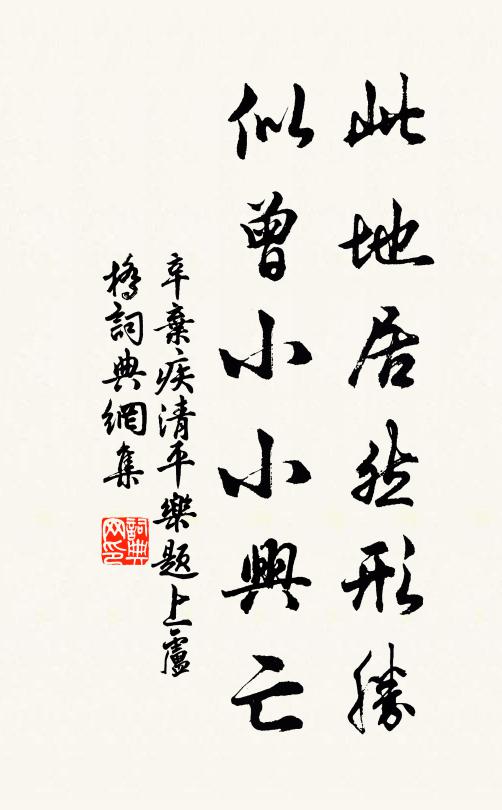 此地居然形勝
似曾小小興亡
辛棄疾清平樂題上盧
橋詞典網集
詞典网印